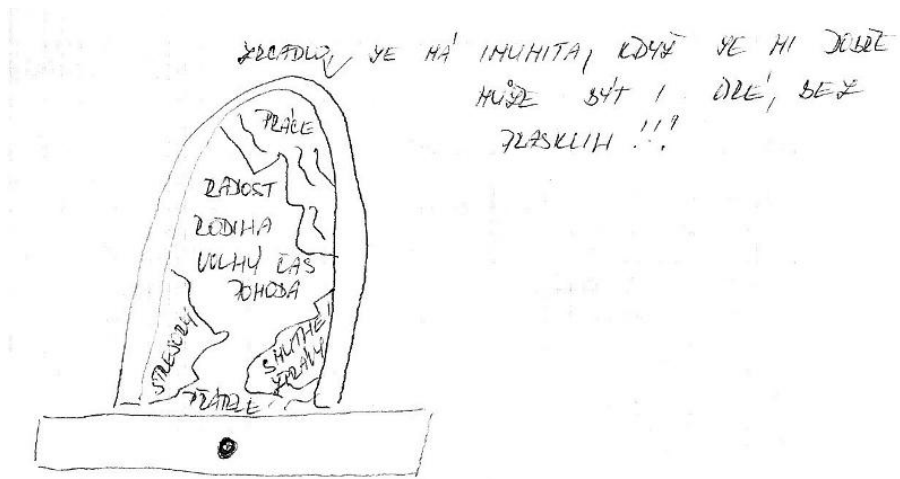 ZRCADLO, JE MÁ IMUNITA, KDYŽ JE MI DOBŘE
MŮŽE BÝT I CELÉ, BEZ
PRASKLIN !!!
PRÁCE
RADOST
RODINA
VOLNÝ ČAS
POHODA
STRESORY
SMUTNÉ
ZPRÁVY